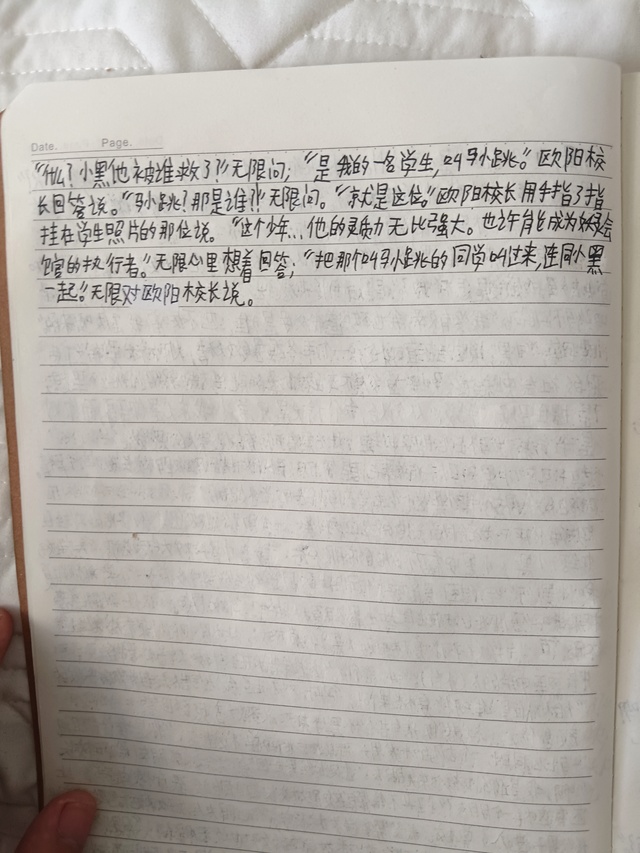 Date. Page.
“什么？小黑他被谁救了？！”无限问；“是我的一名学生，叫马小跳。”欧阳校
长回答说。“马小跳？那是谁？！”无限问。“就是这位。”欧阳校长用手指了指
挂在学生照片的那位说。“这个少年...他的灵质力无比强大。也许能成为妖灵会
馆的执行者。”无限心里想着回答；“把那个叫马小跳的同学叫过来，连同小黑
一起。”无限对欧阳校长说。